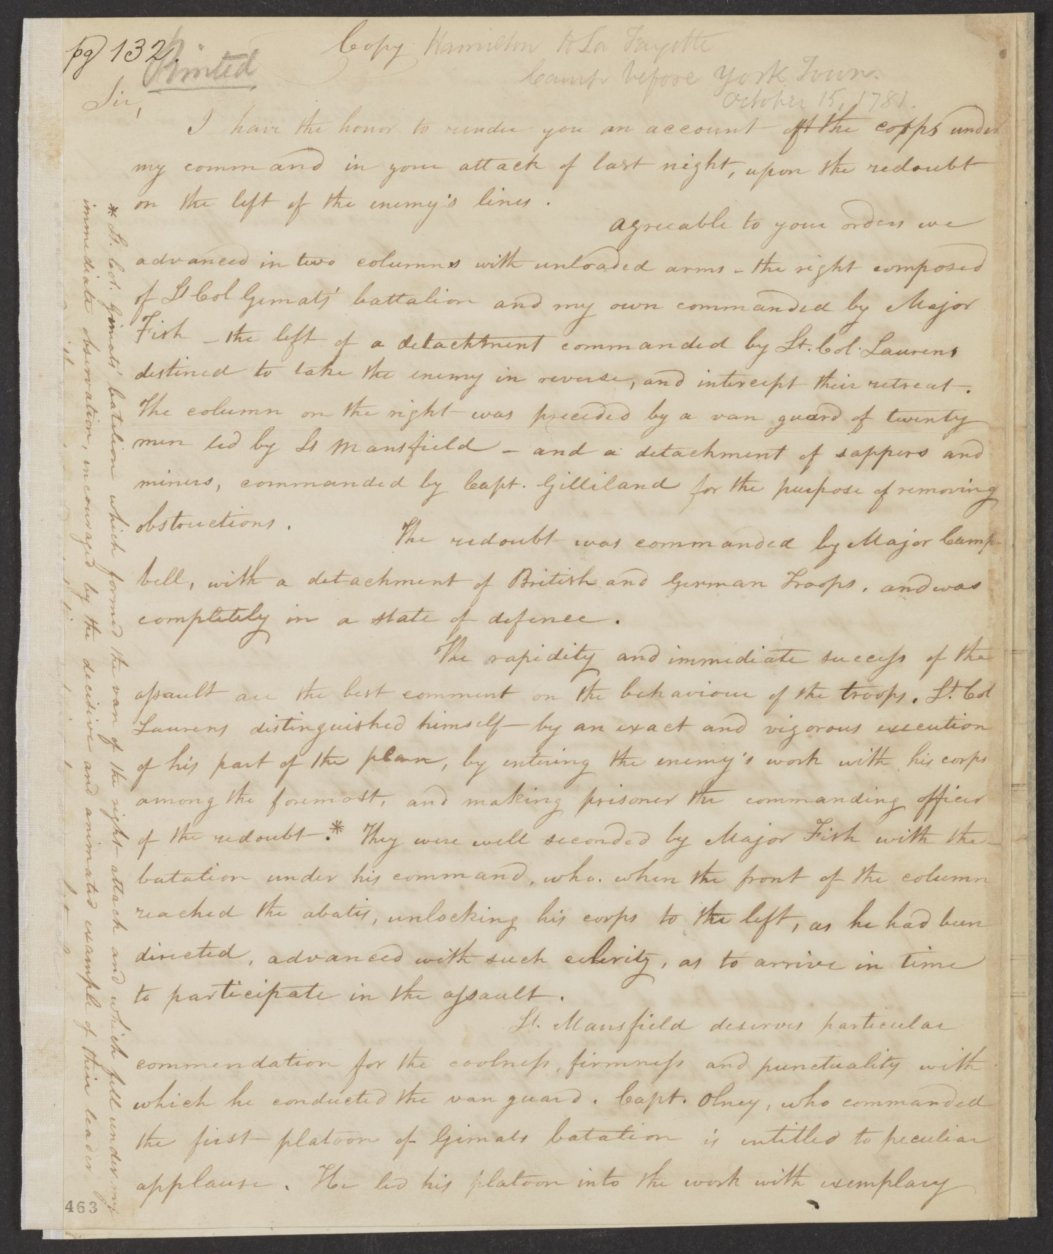 pg 132.
Printed
Copy Hamilton to La Fayette
Camp before York Town.
October 15, 1781.
Sir,
I have the honor to render you an account of the corps under
my command in your attack of last night, upon the redoubt
on the left of the enemy's lines.
agreeable to your orders we
advanced in two columns with unloaded arms - the right composed
of Lt Col Gimats' battalion and my own commanded by Major
Fish - the left of a detachment commanded by Lt. Col. Laurens
destined to take the enemy in reverse, and intercept their retreat -.
The column on the right was preceded by a van guard of twenty
men led by Lt Mansfield - and a detachment of sappers and
miners, commanded by Capt. Gilliland for the purpose of removing
obstructions.
The redoubt was commanded by Major Camp-
bell, with a detachment of British and German Troops, and was
completely in a state of defence.
The rapidity and immediate success of the
assault are the best comment on the behaviour of the troops. Lt. Col
Laurens distinguished himself by an exact and vigorous execution
of his part of the plan, by entering the enemy's work with his corps
among the foremost, and making prisoner the commanding officer
of the redoubt.* They were well seconded by Major Fish with the
batation under his command, who. when the front of the column
reached the abatis, unlocking his corps to the left, as he had been
directed, advanced with such celerity, as to arrive in time
to participate in the assault.
Lt. Mansfield deserves particular
commendation for the coolness, firmness and punctuality with
which he conducted the van guard. Capt. Olney, who commanded
the first platoon of Gimats batation is intitled to peculiar
applause. He led his platoon into the work with exemplary
* Lt. Col. Gimats' batalion which formed the van of the right attack and which fell under my
immediate observation, incouraged by the decisive and animated example of their leader
463